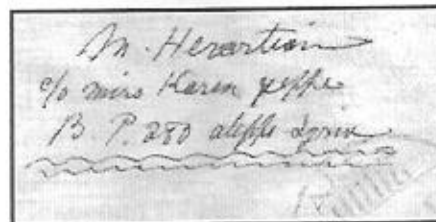 M. Herartian
c/o miss Karen yeppe
B. P. 280 aleppo Syria